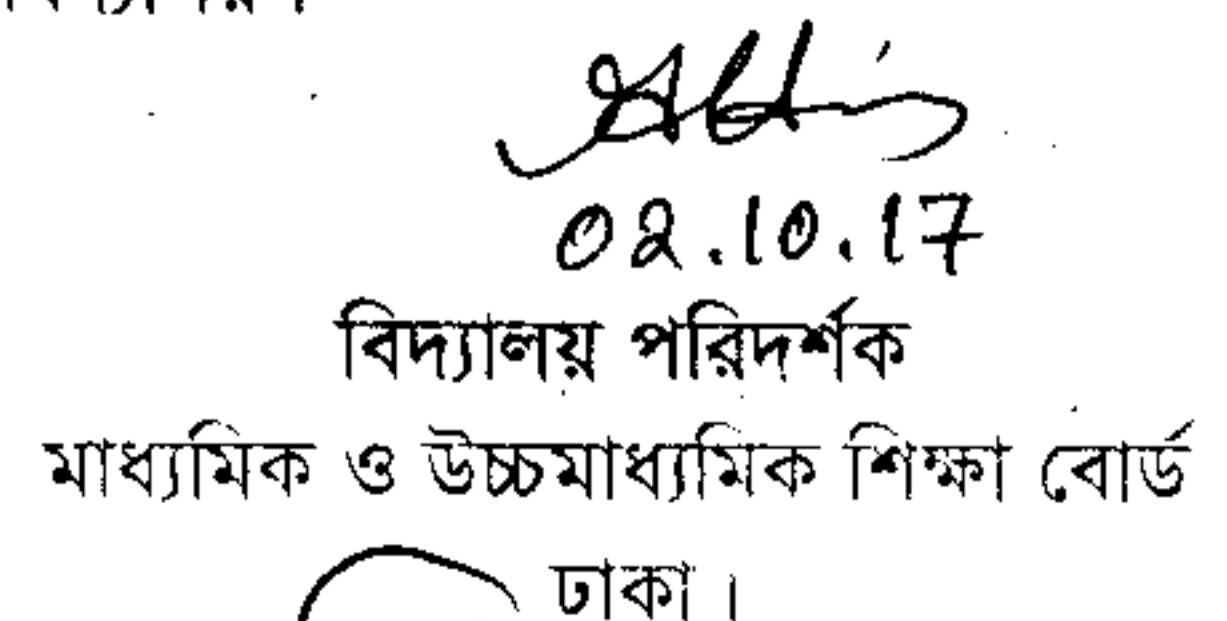 02.10.17
বিদ্যালয় পরিদর্শক
মাধ্যমিক ও উচ্চমাধ্যমিক শিক্ষা বোর্ড
ঢাকা।